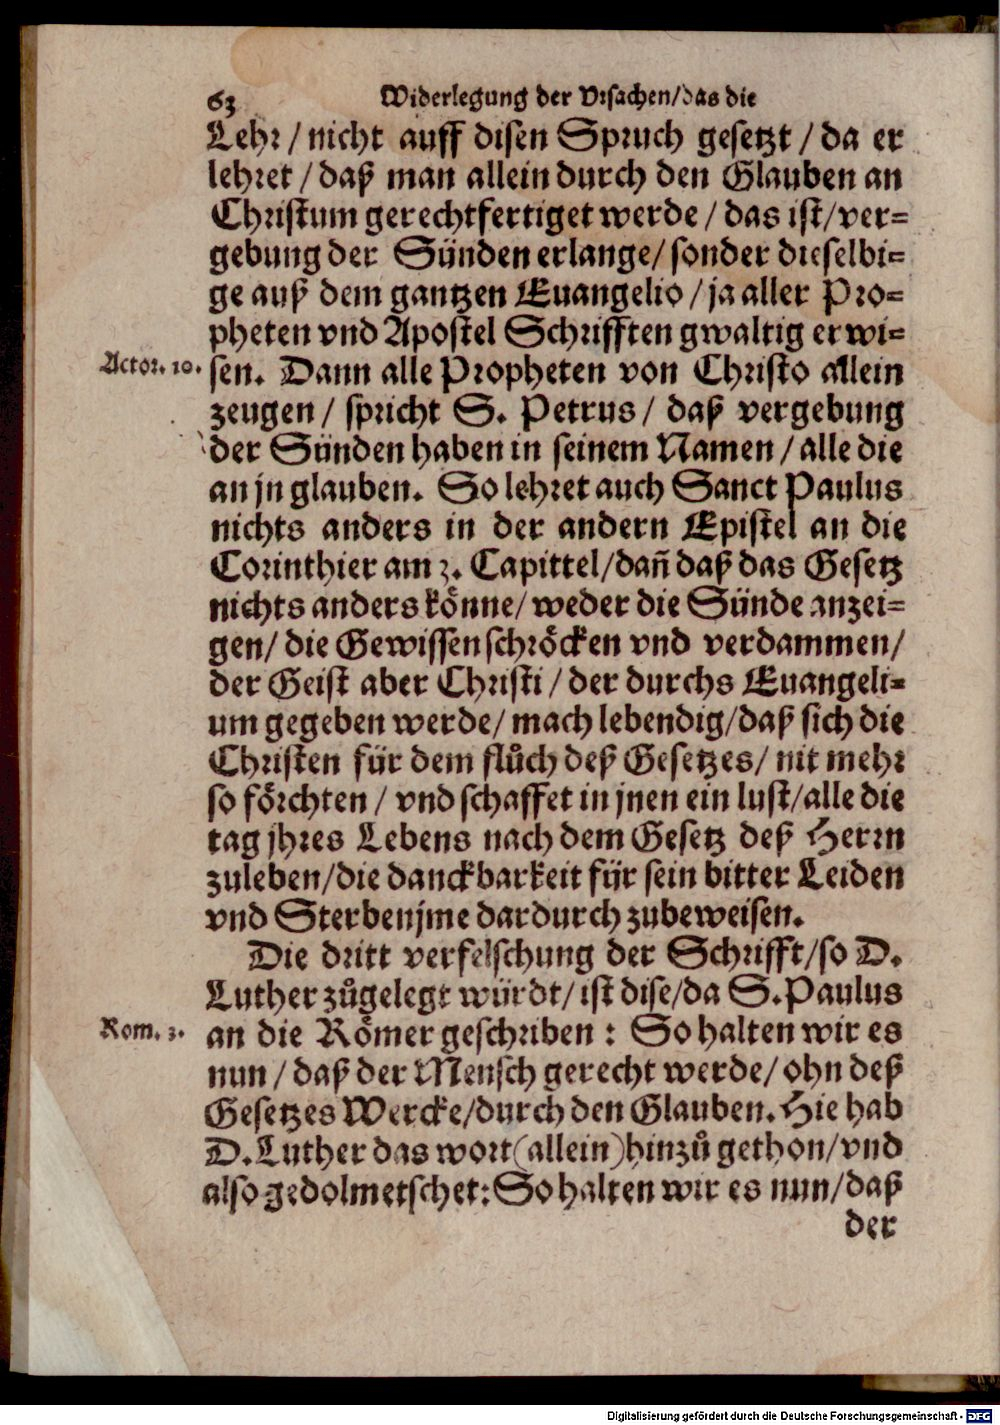 63 Widerlegung der Vrsachen/das die
Lehr/nicht auff disen Spruch gesetzt/da er
lehret/daß man allein durch den Glauben an
Christum gerechtfertiget werde/das ist/ver=
gebung der Sünden erlange/sonder dieselbi=
ge auß dem gantzen Euangelio/ja aller Pro=
pheten vnd Apostel Schrifften gwaltig erwi=
Actor. 10. sen. Dann alle Propheten von Christo allein
zeugen/spricht S. Petrus/daß vergebung
der Sünden haben in seinem Namen/alle die
an jn glauben. So lehret auch Sanct Paulus
nichts anders in der andern Epistel an die
Corinthier am 3. Capittel/dañ daß das Gesetz
nichts anders könne/weder die Sünde anzei=
gen/die Gewissen schröcken vnd verdammen/
der Geist aber Christi/der durchs Euangeli=
um gegeben werde/mach lebendig/daß sich die
Christen für dem flůch deß Gesetzes/nit mehr
so förchten/vnd schaffet in jnen ein lust/alle die
tag jhres Lebens nach dem Gesetz deß Herrn
zuleben/die danckbarkeit für sein bitter Leiden
vnd Sterben jme dardurch zubeweisen.
Die dritt verfelschung der Schrifft/so D.
Luther zůgelegt würdt/ist dise/da S. Paulus
Rom. 3. an die Römer geschriben: So halten wir es
nun/daß der Mensch gerecht werde/ohn deß
Gesetzes Wercke/durch den Glauben. Hie hab
D. Luther das wort (allein) hinzů gethon/vnd
also gedolmetschet: So halten wir es nun/daß
der
Digitalisierung gefördert durch die Deutsche Forschungsgemeinschaft - DFG